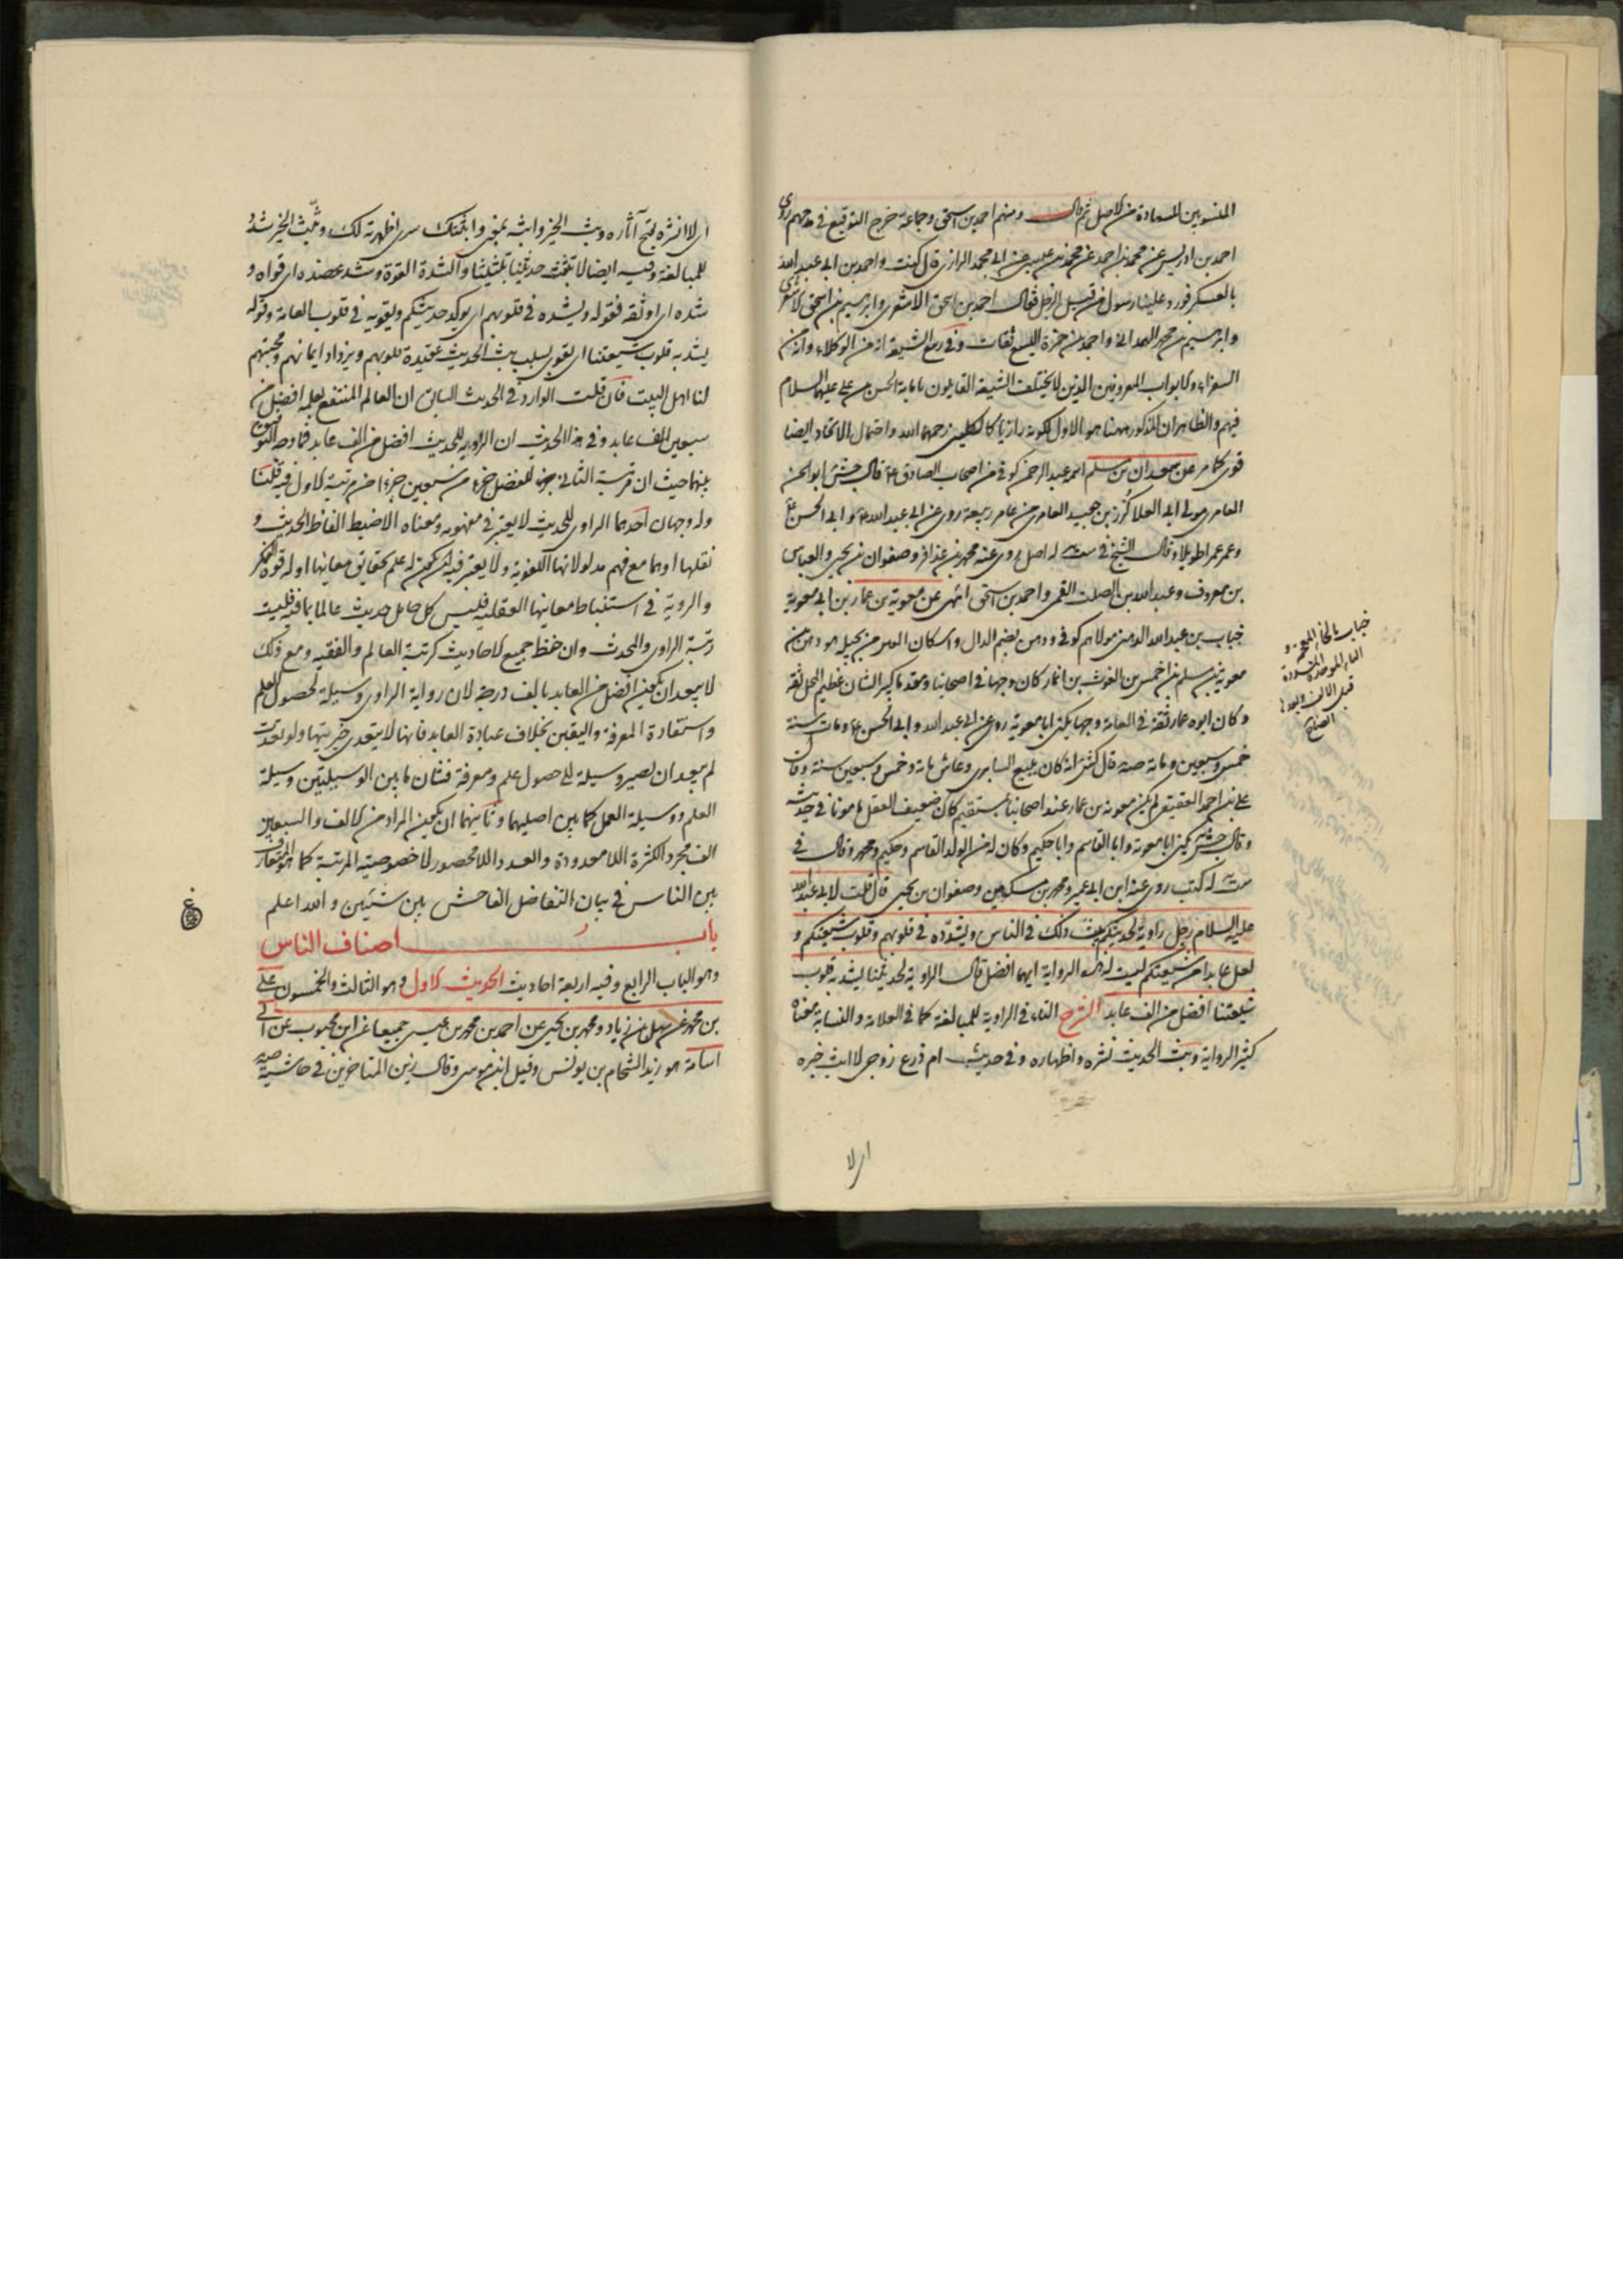 المنسوبين للسعادة من الاصل ثم قال ومنهم احمد بن اسحق وجماعة خرج التوقيع في مدحهم روى
احمد بن ادريس عن محمد بن احمد عن محمد بن عيسى عن ابي محمد الرازي قال كنت واحمد بن ابي عبد الله
بالعسكر فورد علينا رسول من قبل الرجل فقال احمد بن اسحق الاشعري وابرهيم بن محمد
وابرهيم بن محمد الهمداني واحمد بن حمزة اليسع ثقات وفي ربيع الشيعة انه من الوكلاء وانه من
السفراء والابواب المعروفين الذين لا يختلف الشيعة القايلون بامامة الحسن بن علي عليهما السلام
فيهم والظاهر ان المذكور ههنا هو الاول لكونه رازيا كالكليني رحمهما الله واحتمال الاتحاد ايضا
قوي كما مر عن سعدان بن مسلم اسمه عبد الرحمن كوفي من اصحاب الصادق ع قال جش ابو الحسن
العامري مولى ابي العلا كرز بن جعيد العامري من عامر ربيعة روى عن ابي عبد الله ع وابي الحسن ع
وعمر عمرا طويلا وقال الشيخ في ست له اصل روى عنه محمد بن عذافر وصفوان بن يحيى والعباس
بن معروف وعبد الله بن الصلت القمي واحمد بن اسحق انتهى عن معوية بن عمار بن ابي معوية
خباب بن عبد الله الدهني مولاهم كوفي ودهن بضم الدال واسكان الهاء من بجيلة هو دهن بن
معوية بن سلم بن احمس بن الغوث بن انمار كان وجها في اصحابنا ومقدما كبير الشان عظيم المحل ثقة
وكان ابوه عمار ثقة في العامة وجها يكنى ابا معوية روى عن ابي عبد الله وابي الحسن ع ومات سنة
خمس وسبعين ومائة صه قال كش انه كان يبيع السابري وعاش مائة وخمس وسبعين سنة وقال
علي بن احمد العقيقي لم يكن معوية بن عمار عند اصحابنا بمستقيم كان ضعيف العقل مامونا في حديثه
وقال جش يكنى ابا معوية وابا القاسم وابا حكيم وكان له من الولد القاسم وحكيم ومحمد وقال في
ست له كتب روى عنه ابن ابي عمير ومحمد بن سكين وصفوان بن يحيى قال قلت لابي عبد الله
عليه السلام رجل راوية لحديثكم يبث ذلك في الناس ويشدده في قلوبهم وقلوب شيعتكم و
لعل عابدا من شيعتكم ليست له هذه الرواية ايهما افضل قال الراوية لحديثنا يشد به قلوب
شيعتنا افضل من الف عابد الشرح التاء في الراوية للمبالغة كما في العلامة والنسابة معناه
كثير الرواية وبث الحديث نشره واظهاره وفي حديث ام زرع زوجي لا ابث خبره
اى لا
خباب بالخاء المعجمة و
الباء الموحدة المشددة
قبل الالف وبعدها
ايضا
اى لا انشره لقبح آثاره وبث الخبر وابثه بمعنى وابثثتك سرى اظهرته لك وبثبث الخبر شدد
للمبالغة وفيه ايضا لا تبثث حديثنا تبثيثا والشدة القوة وشد عضده اى قواه و
شده اى اوثقه فقوله ويشدده في قلوبهم اى يوكد حديثكم ويقويه في قلوب العامة وقوله
يشد به قلوب شيعتنا اى يقوى بسبب بث الحديث عقيدة قلوبهم ويزداد ايمانهم ومحبتهم
لنا اهل البيت فان قلت الوارد في الحديث السابق ان العالم المنتفع بعلمه افضل من
سبعين الف عابد وفي هذا الحديث ان الراوية للحديث افضل من الف عابد فما وجه التوفيق
بينهما حيث ان مرتبة الثاني جزء للفضل جزء من سبعين جزءا من مرتبة الاول فيه قلنا
وله وجهان احدهما الراوى للحديث لا يعتبر في مفهومه ومعناه الا ضبط الفاظ الحديث و
نقلها اوهما مع فهم مدلولاتها اللغوية ولا يعتبر فيه ان يكون له علم بحقايق معانيها او له قوة الفكر
والروية في استنباط معانيها العقلية فليس كل حامل حديث عالما بما فيه فليست
رتبة الراوى والمحدث وان حفظ جميع الاحاديث كرتبة العالم والفقيه ومع ذلك
لا يبعد ان يكون افضل من العابد بالف درجة لان رواية الراوى وسيلة لحصول العلم
واستفادة المعرفة واليقين بخلاف عبادة العابد فانها لا يتعدى خيريتها ولو تعدت
لم يبعد ان تصير وسيلة الى حصول علم ومعرفة فشتان ما بين الوسيلتين وسيلة
العلم ووسيلة العمل كما بين اصليهما وثانيهما ان يكون المراد من الالف والسبعين
الف مجرد الكثرة اللا معدودة والعدد اللا محصور لا خصوصية المرتبة كما هو المتعارف
بين الناس في بيان التفاضل الفاحش بين شيئين والله اعلم
باب اصناف الناس
وهو الباب الرابع وفيه اربعة احاديث الحديث الاول وهو الثالث والخمسون علي
بن محمد عن سهل بن زياد ومحمد بن يحيى عن احمد بن محمد بن عيسى جميعا عن ابن محبوب عن ابي
اسامة هو زيد الشحام بن يونس وقيل ابن موسى وقال زين المتاخرين في حاشية صه